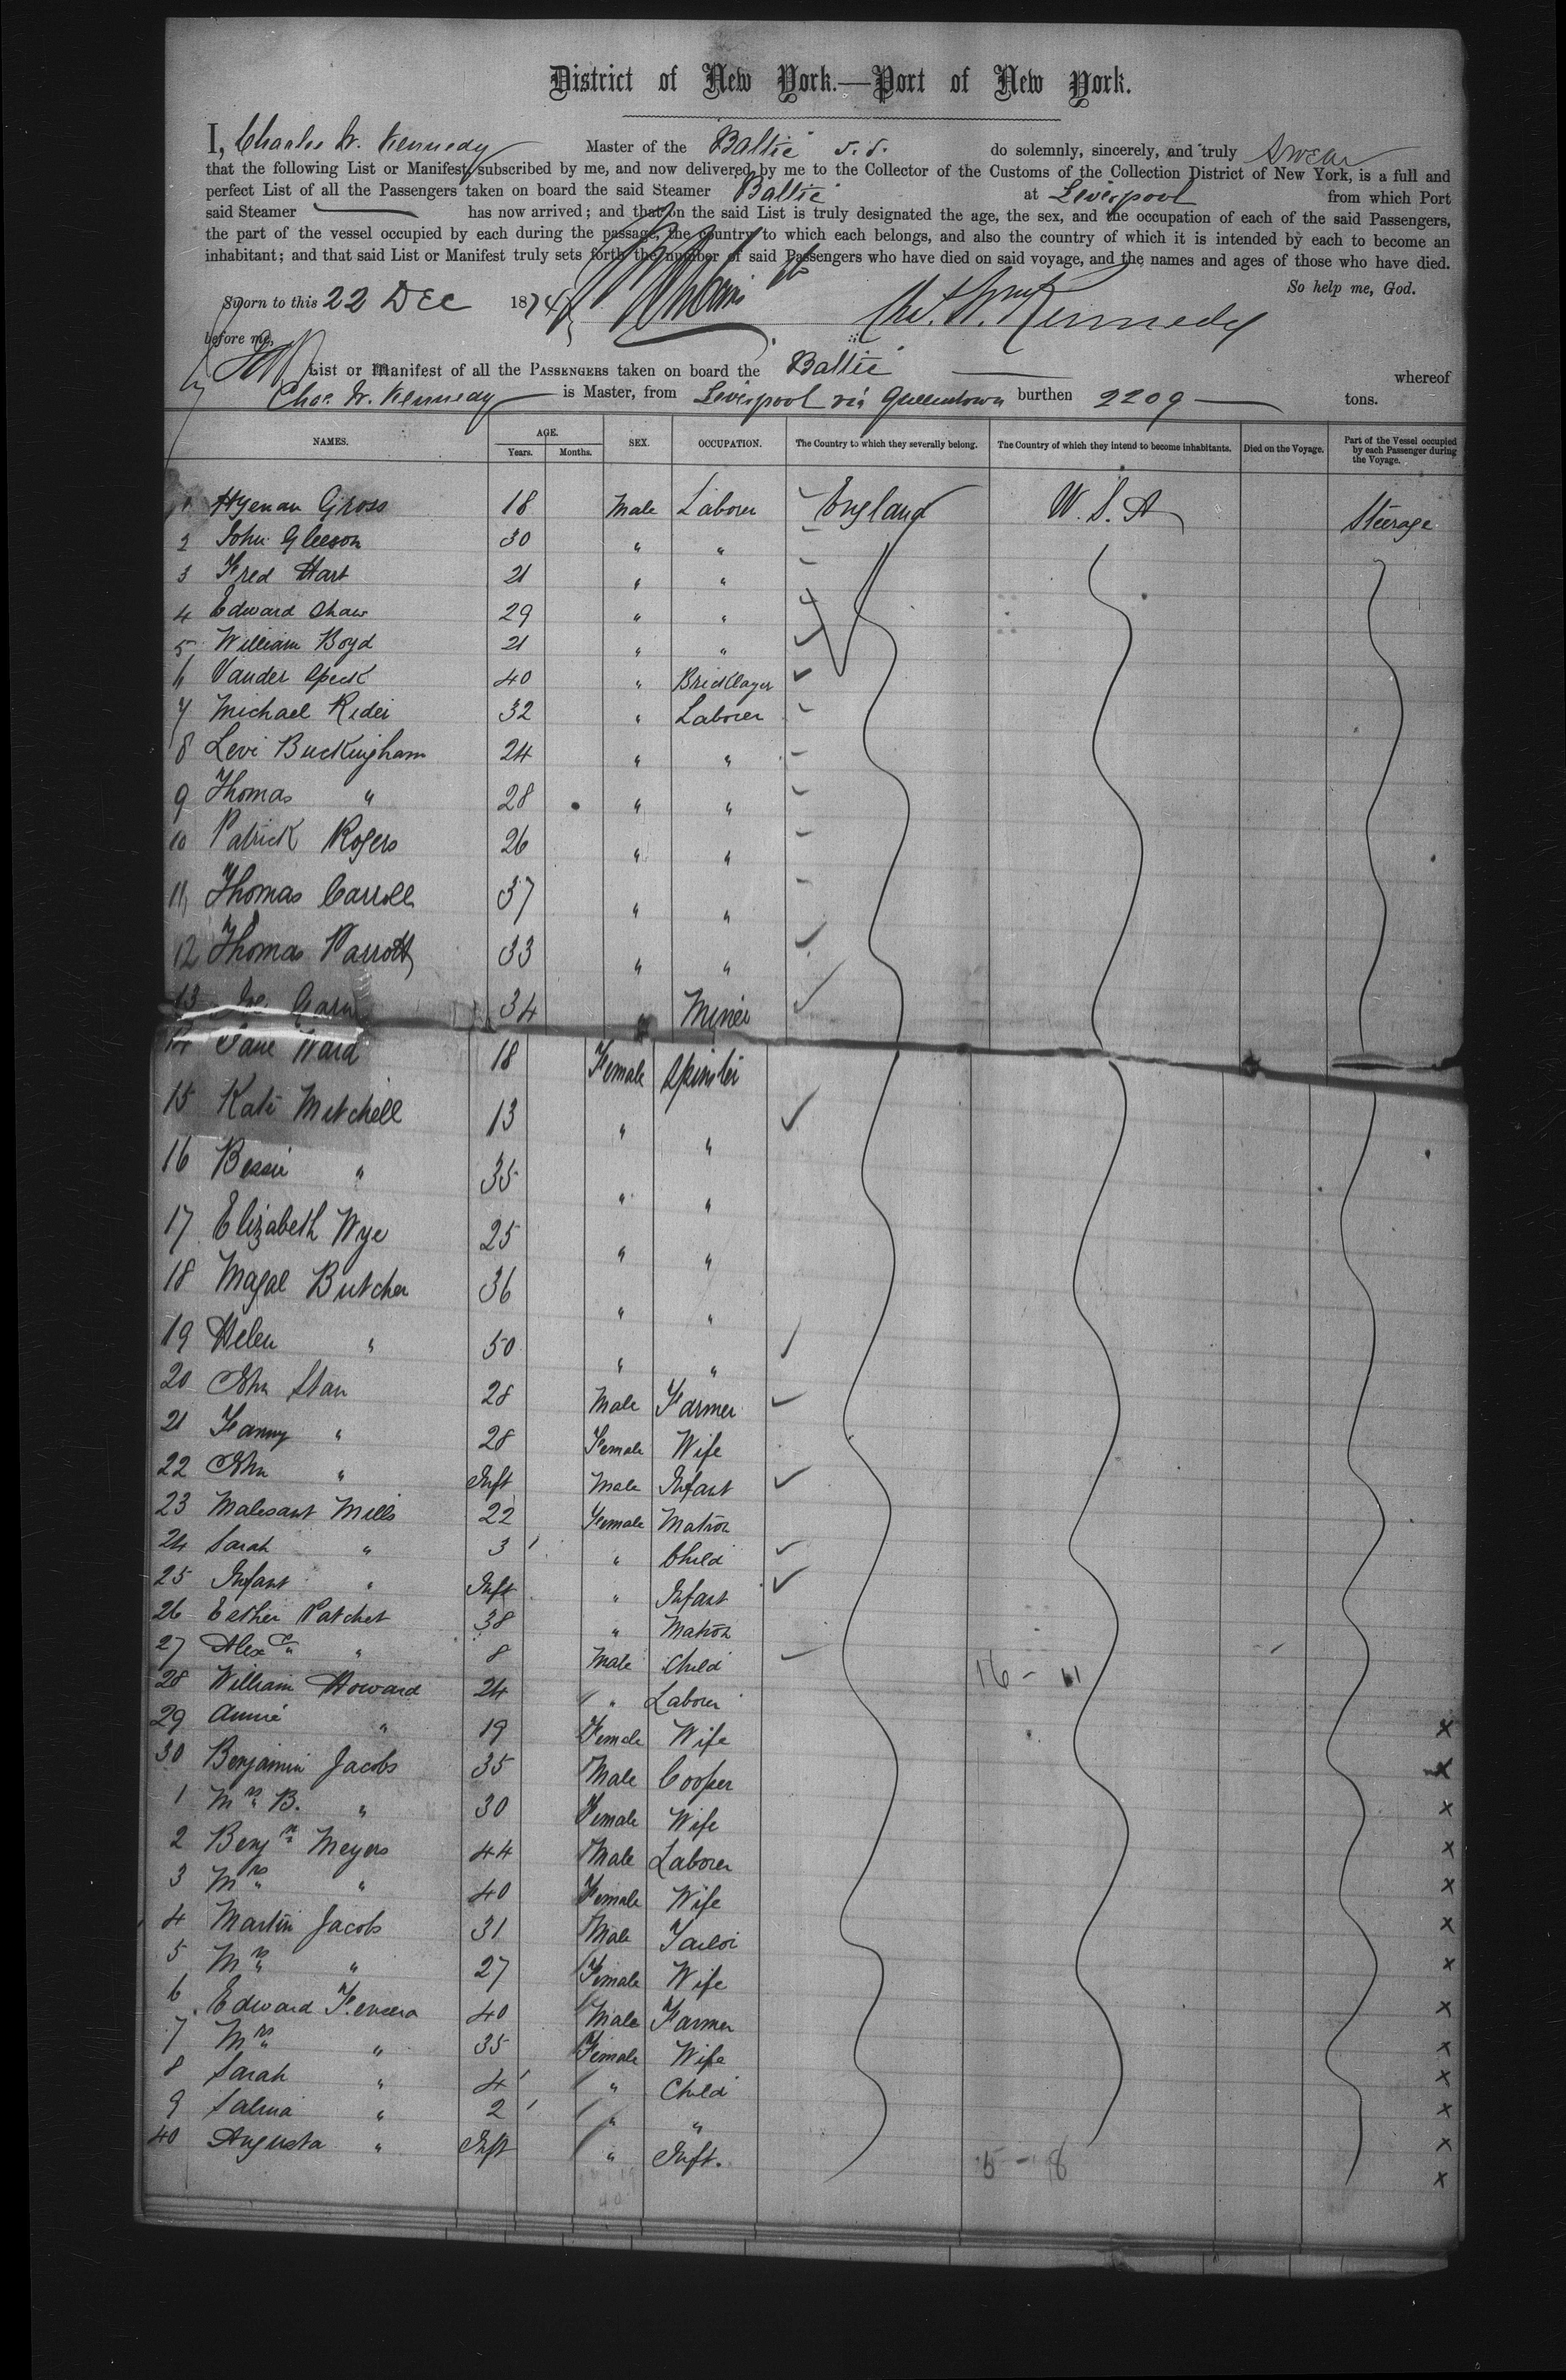 District of New York.—Port of New York.
I, Charles W. Kennedy Master of the Baltic s.s. do solemnly, sincerely, and truly swear
that the following List or Manifest, subscribed by me, and now delivered by me to the Collector of the Customs of the Collection District of New York, is a full and
perfect List of all the Passengers taken on board the said Steamer Baltic at Liverpool from which Port
said Steamer has now arrived; and that on the said List is truly designated the age, the sex, and the occupation of each of the said Passengers,
the part of the vessel occupied by each during the passage, the country to which each belongs, and also the country of which it is intended by each to become an
inhabitant; and that said List or Manifest truly sets forth the number of said Passengers who have died on said voyage, and the names and ages of those who have died.
So help me, God.
Sworn to this 22 Dec 1874 Kennedy
before me,
List or Manifest of all the PASSENGERS taken on board the Baltic whereof
Chas. W. Kennedy is Master, from Liverpool via Queenstown burthen 2209 tons.
NAMES. AGE. Years. Months. SEX. OCCUPATION. The Country to which they severally belong. The Country of which they intend to become inhabitants. Died on the Voyage. Part of the Vessel occupied by each Passenger during the Voyage.
1 Hyman Gross 18 Male Laborer England U.S.A Steerage
2 John Gleeson 30 " "
3 Fred Hart 21 " "
4 Edward Shaw 29 " "
5 William Boyd 21 " "
6 Vander Speck 40 " Bricklayer
7 Michael Rider 32 " Laborer
8 Levi Buckingham 24 " "
9 Thomas " 28 " "
10 Patrick Rogers 26 " "
11 Thomas Carroll 37 " "
12 Thomas Parrott 33 " "
13 34 " Miner
14 Jane Ward 18 Female Spinster
15 Kate Mitchell 13 " "
16 Bessie " 35 " "
17 Elizabeth Wye 25 " "
18 Magal Butcher 36 " "
19 Helen " 50 " "
20 Jno Starr 28 Male Farmer
21 Fanny " 28 Female Wife
22 Jno " Inft Male Infant
23 Malesant Mills 22 Female Matron
24 Sarah " 3 " Child
25 Infant " Inft " Infant
26 Esther Patchet 38 " Matron
27 Alexr " 8 Male Child 16 - 11
28 William Howard 24 " Laborer
29 Annie " 19 Female Wife x
30 Benjamin Jacobs 35 Male Cooper x
1 Mrs B. " 30 Female Wife x
2 Benjn Meyers 44 Male Laborer x
3 Mrs " 40 Female Wife x
4 Martin Jacobs 31 Male Tailor x
5 Mrs " 27 Female Wife x
6 Edward 40 Male Farmer x
7 Mrs " 35 Female Wife x
8 Sarah " 4 " Child x
9 Salina " 2 " " x
40 Augusta " Inft " Inft. 5 - 8 x
x
40